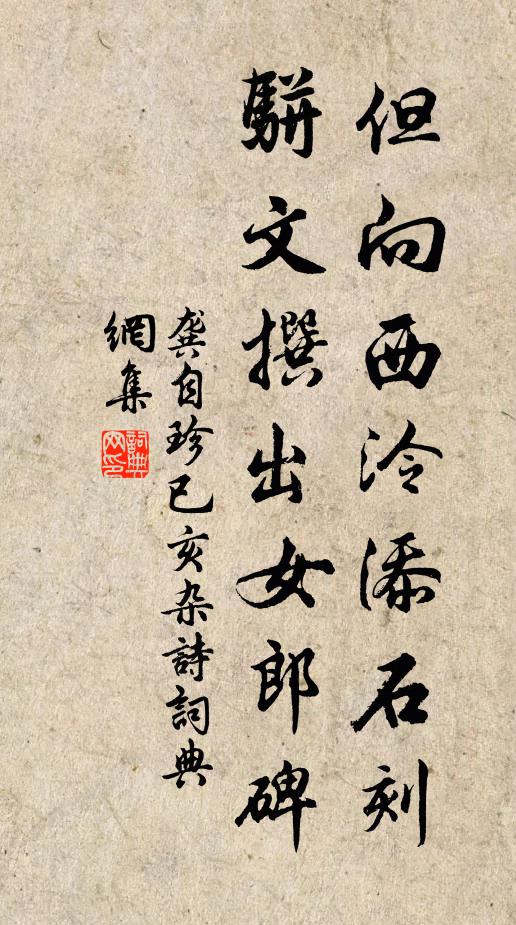 但向西泠添石刻
駢文撰出女郎碑
龔自珍已亥杂詩詞典
網集
詞典網印